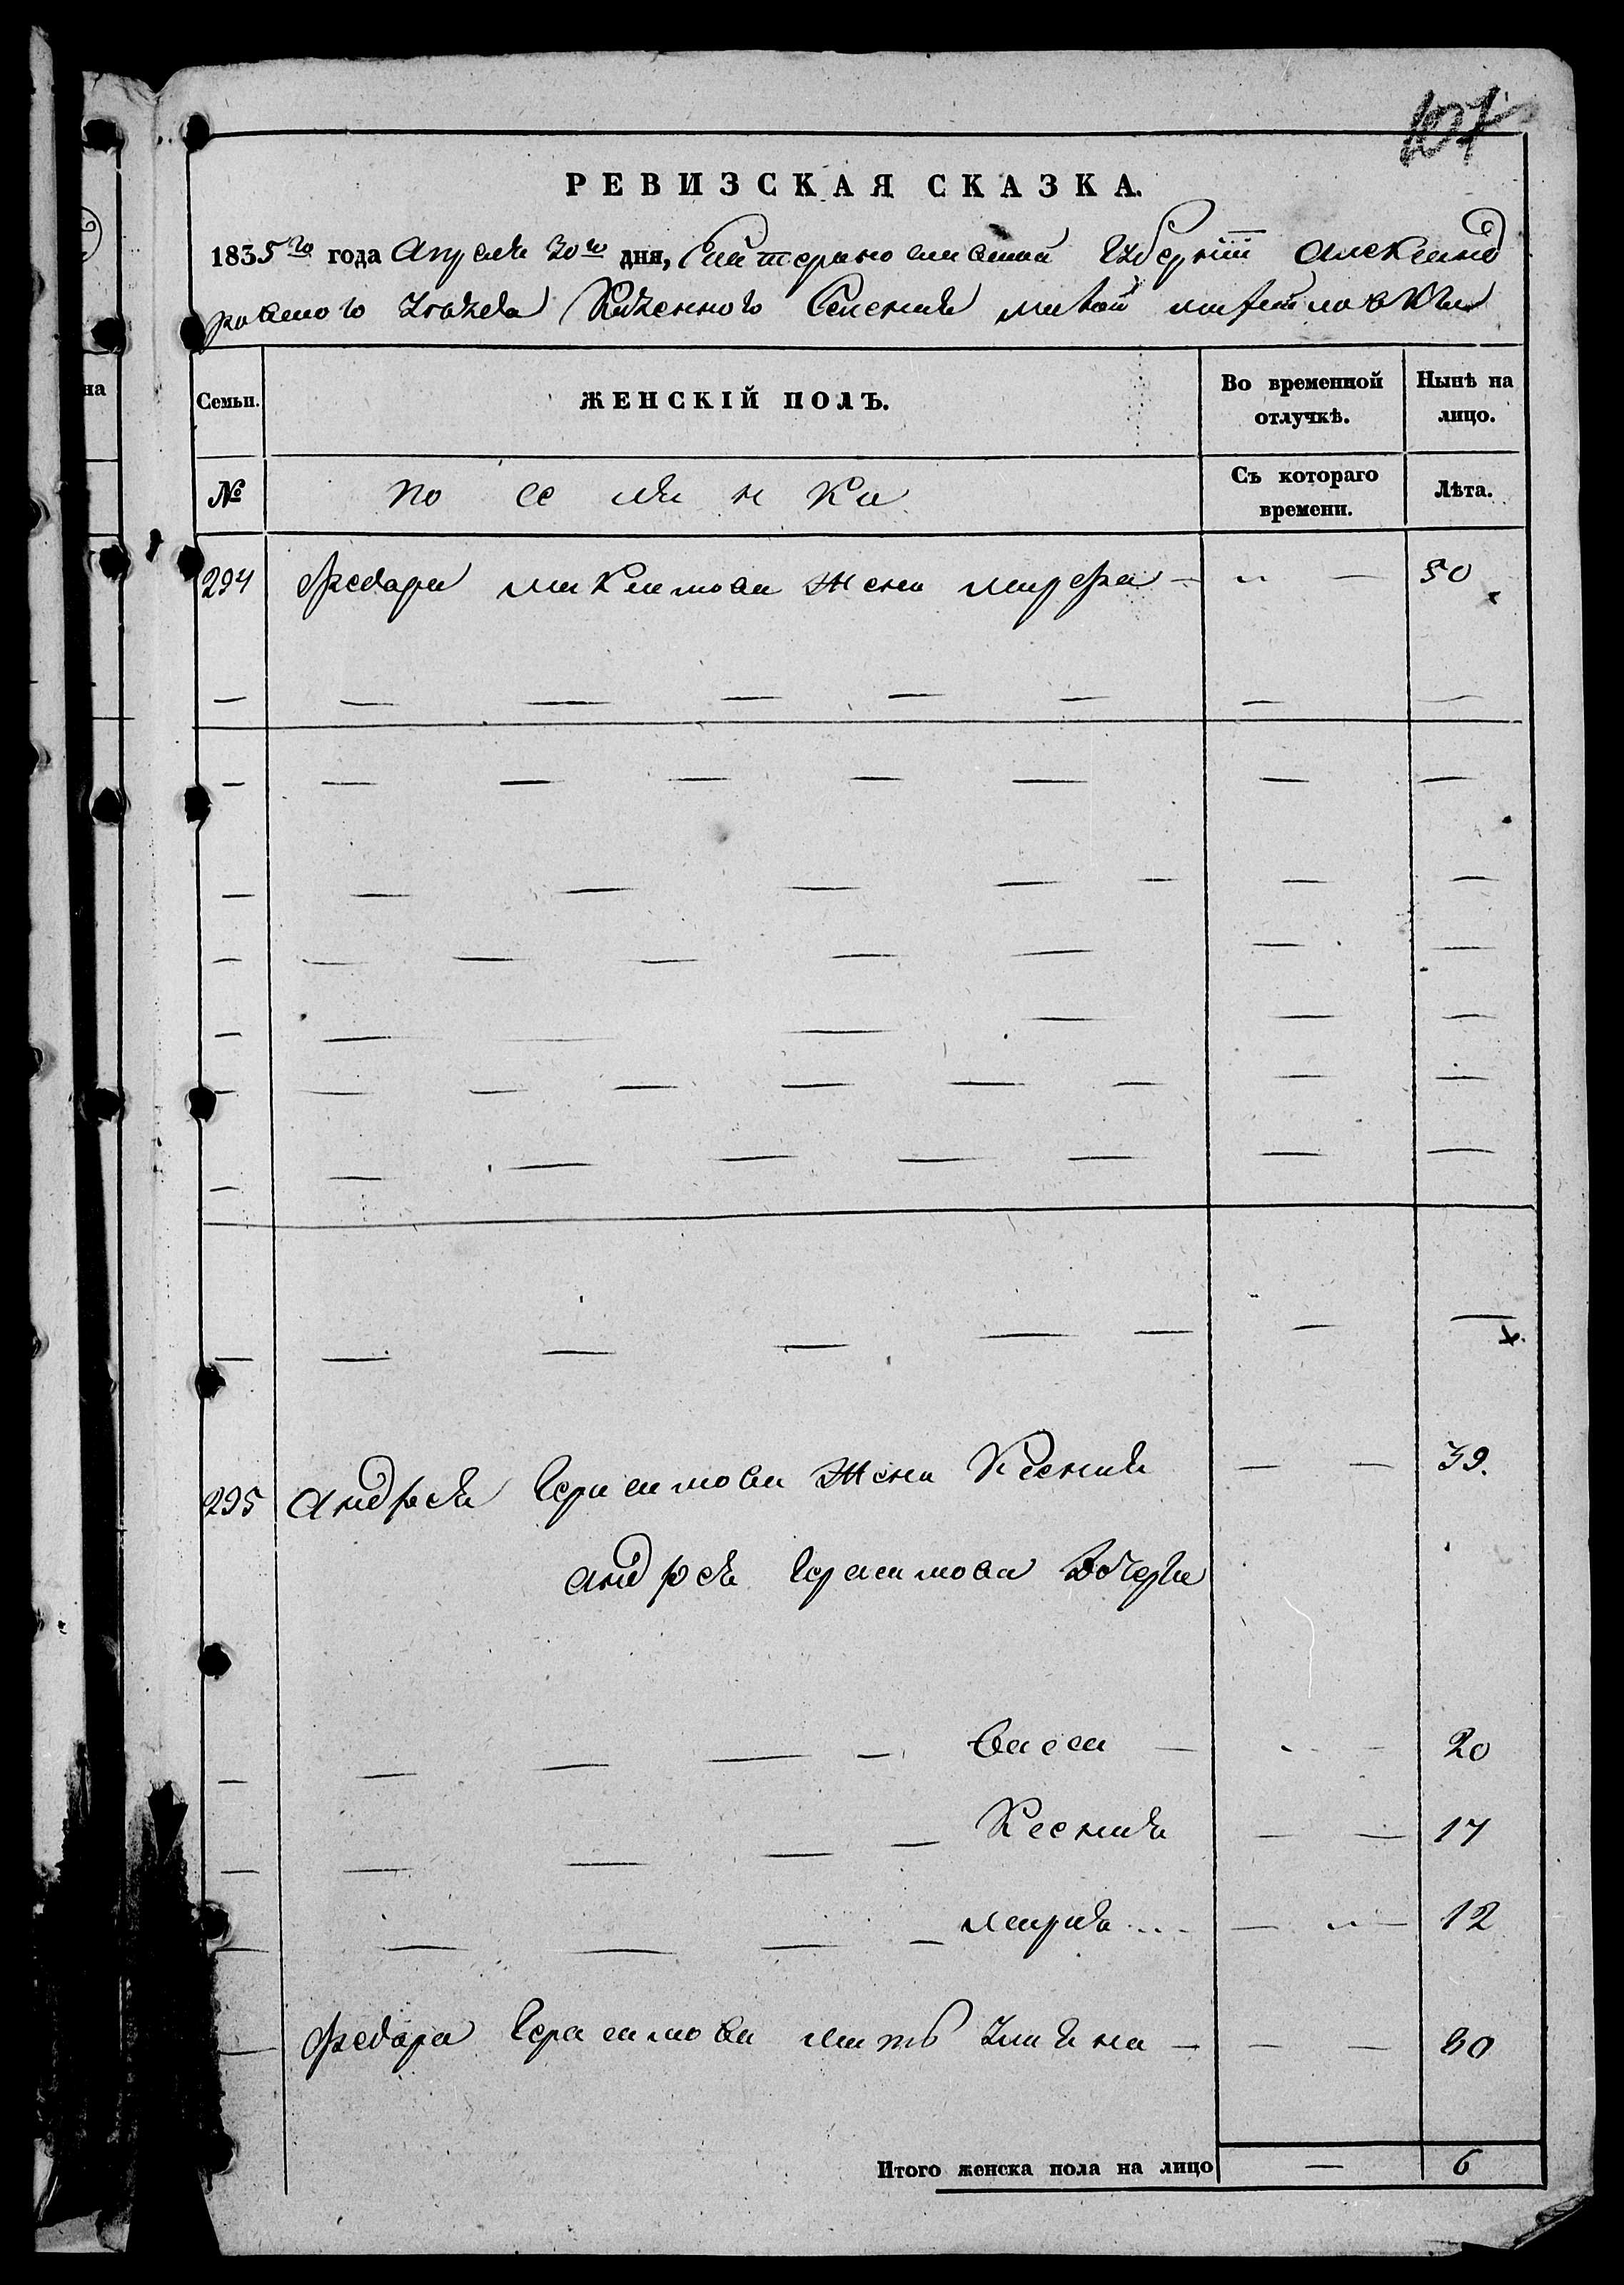 107
РЕВИЗСКАЯ СКАЗКА.
1835го года Апреля 30го дня, Екатеринославской Губернiи Александ
ровского Уезда Казенного Селения малой михайловки
на
Семьи.
ЖЕНСКІЙ ПОЛЪ.
Во временной отлучкѣ.
Нынѣ на лицо.
№
поселянка
Съ котораго времени.
Лѣта.
294 Федара никитова жена марфа — — 50
295 Андрея Герасимова жена Ксения — — 39.
андрея Герасимова дочери
Васса — 20
Ксения — — 17
мария — — 12
Федара Герасимова мать — — 60
Итого женска пола на лицо — 6